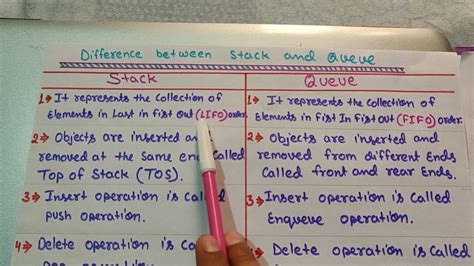 Difference between Stack and Queue
Stack
1→ It represents the Collection of
Elements in Last in fist Out (LIFO) order.
2→ Objects are inserted
removed at the Same Called
Top of Stack (TOS).
3→ Insert operation is Called
Push operation.
4→ Delete operation is
Queue
1→ It represents the Collection of
Elements in fist In fist Out (FIFO) order.
2→ Objects are inserted and
removed from different Ends
Called front and rear Ends.
3→ Insert operation is Called
Enqueue operation.
Delete operation is